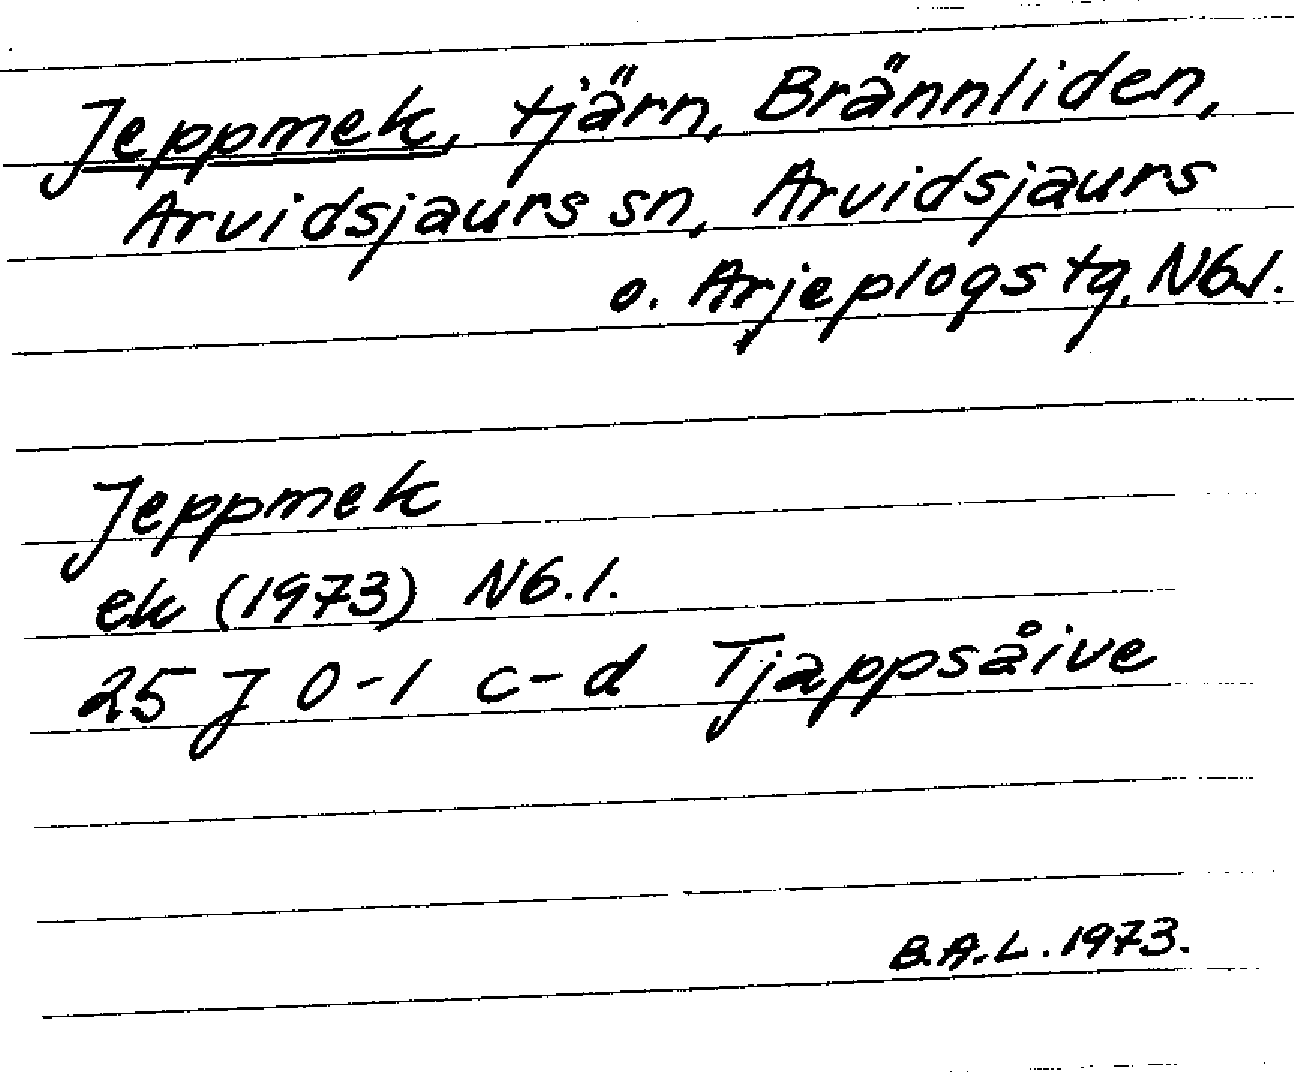 Jeppmek, tjärn, Brännliden,
Arvidsjaurs sn, Arvidsjaurs
o. Arjeplogs tg, Nb.l.
Jeppmek
ek (1973) Nb.l.
25 J 0-1 c-d Tjappsåive
B.A.L. 1973.